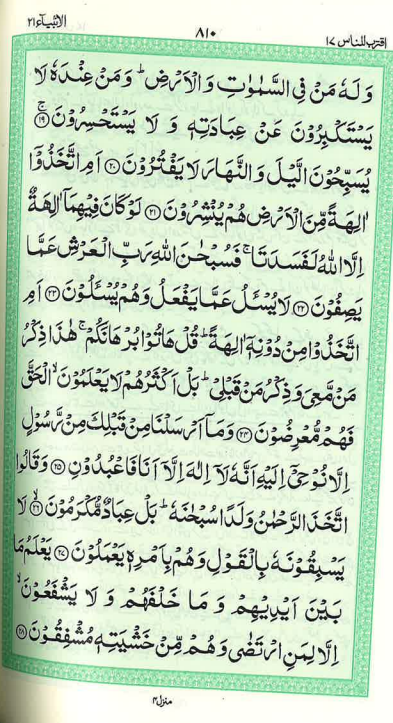 الانبیاء ۲۱
۸۱۰
اقترب للناس ۱۷
وَلَهٗ مَنْ فِی السَّمٰوٰتِ وَالْاَرْضِ ؕ وَمَنْ عِنْدَهٗ لَا
یَسْتَكْبِرُوْنَ عَنْ عِبَادَتِهٖ وَ لَا یَسْتَحْسِرُوْنَ ۚ ۱۹
یُسَبِّحُوْنَ الَّیْلَ وَالنَّهَارَ لَا یَفْتُرُوْنَ ۲۰ اَمِ اتَّخَذُوْۤا
اٰلِهَةً مِّنَ الْاَرْضِ هُمْ یُنْشِرُوْنَ ۲۱ لَوْ كَانَ فِیْهِمَاۤ اٰلِهَةٌ
اِلَّا اللّٰهُ لَفَسَدَتَا ۚ فَسُبْحٰنَ اللّٰهِ رَبِّ الْعَرْشِ عَمَّا
یَصِفُوْنَ ۲۲ لَا یُسْـَٔلُ عَمَّا یَفْعَلُ وَهُمْ یُسْـَٔلُوْنَ ۲۳ اَمِ
اتَّخَذُوْا مِنْ دُوْنِهٖۤ اٰلِهَةً ؕ قُلْ هَاتُوْا بُرْهَانَكُمْ ۚ هٰذَا ذِكْرُ
مَنْ مَّعِیَ وَذِكْرُ مَنْ قَبْلِیْ ؕ بَلْ اَكْثَرُهُمْ لَا یَعْلَمُوْنَ ۙ الْحَقَّ
فَهُمْ مُّعْرِضُوْنَ ۲۴ وَمَاۤ اَرْسَلْنَا مِنْ قَبْلِكَ مِنْ رَّسُوْلٍ
اِلَّا نُوْحِیْۤ اِلَیْهِ اَنَّهٗ لَاۤ اِلٰهَ اِلَّاۤ اَنَا فَاعْبُدُوْنِ ۲۵ وَقَالُوا
اتَّخَذَ الرَّحْمٰنُ وَلَدًا سُبْحٰنَهٗ ؕ بَلْ عِبَادٌ مُّكْرَمُوْنَ ۙ ۲۶ لَا
یَسْبِقُوْنَهٗ بِالْقَوْلِ وَهُمْ بِاَمْرِهٖ یَعْمَلُوْنَ ۲۷ یَعْلَمُ مَا
بَیْنَ اَیْدِیْهِمْ وَ مَا خَلْفَهُمْ وَ لَا یَشْفَعُوْنَ ۙ
اِلَّا لِمَنِ ارْتَضٰی وَهُمْ مِّنْ خَشْیَتِهٖ مُشْفِقُوْنَ ۲۸
منزل ۴